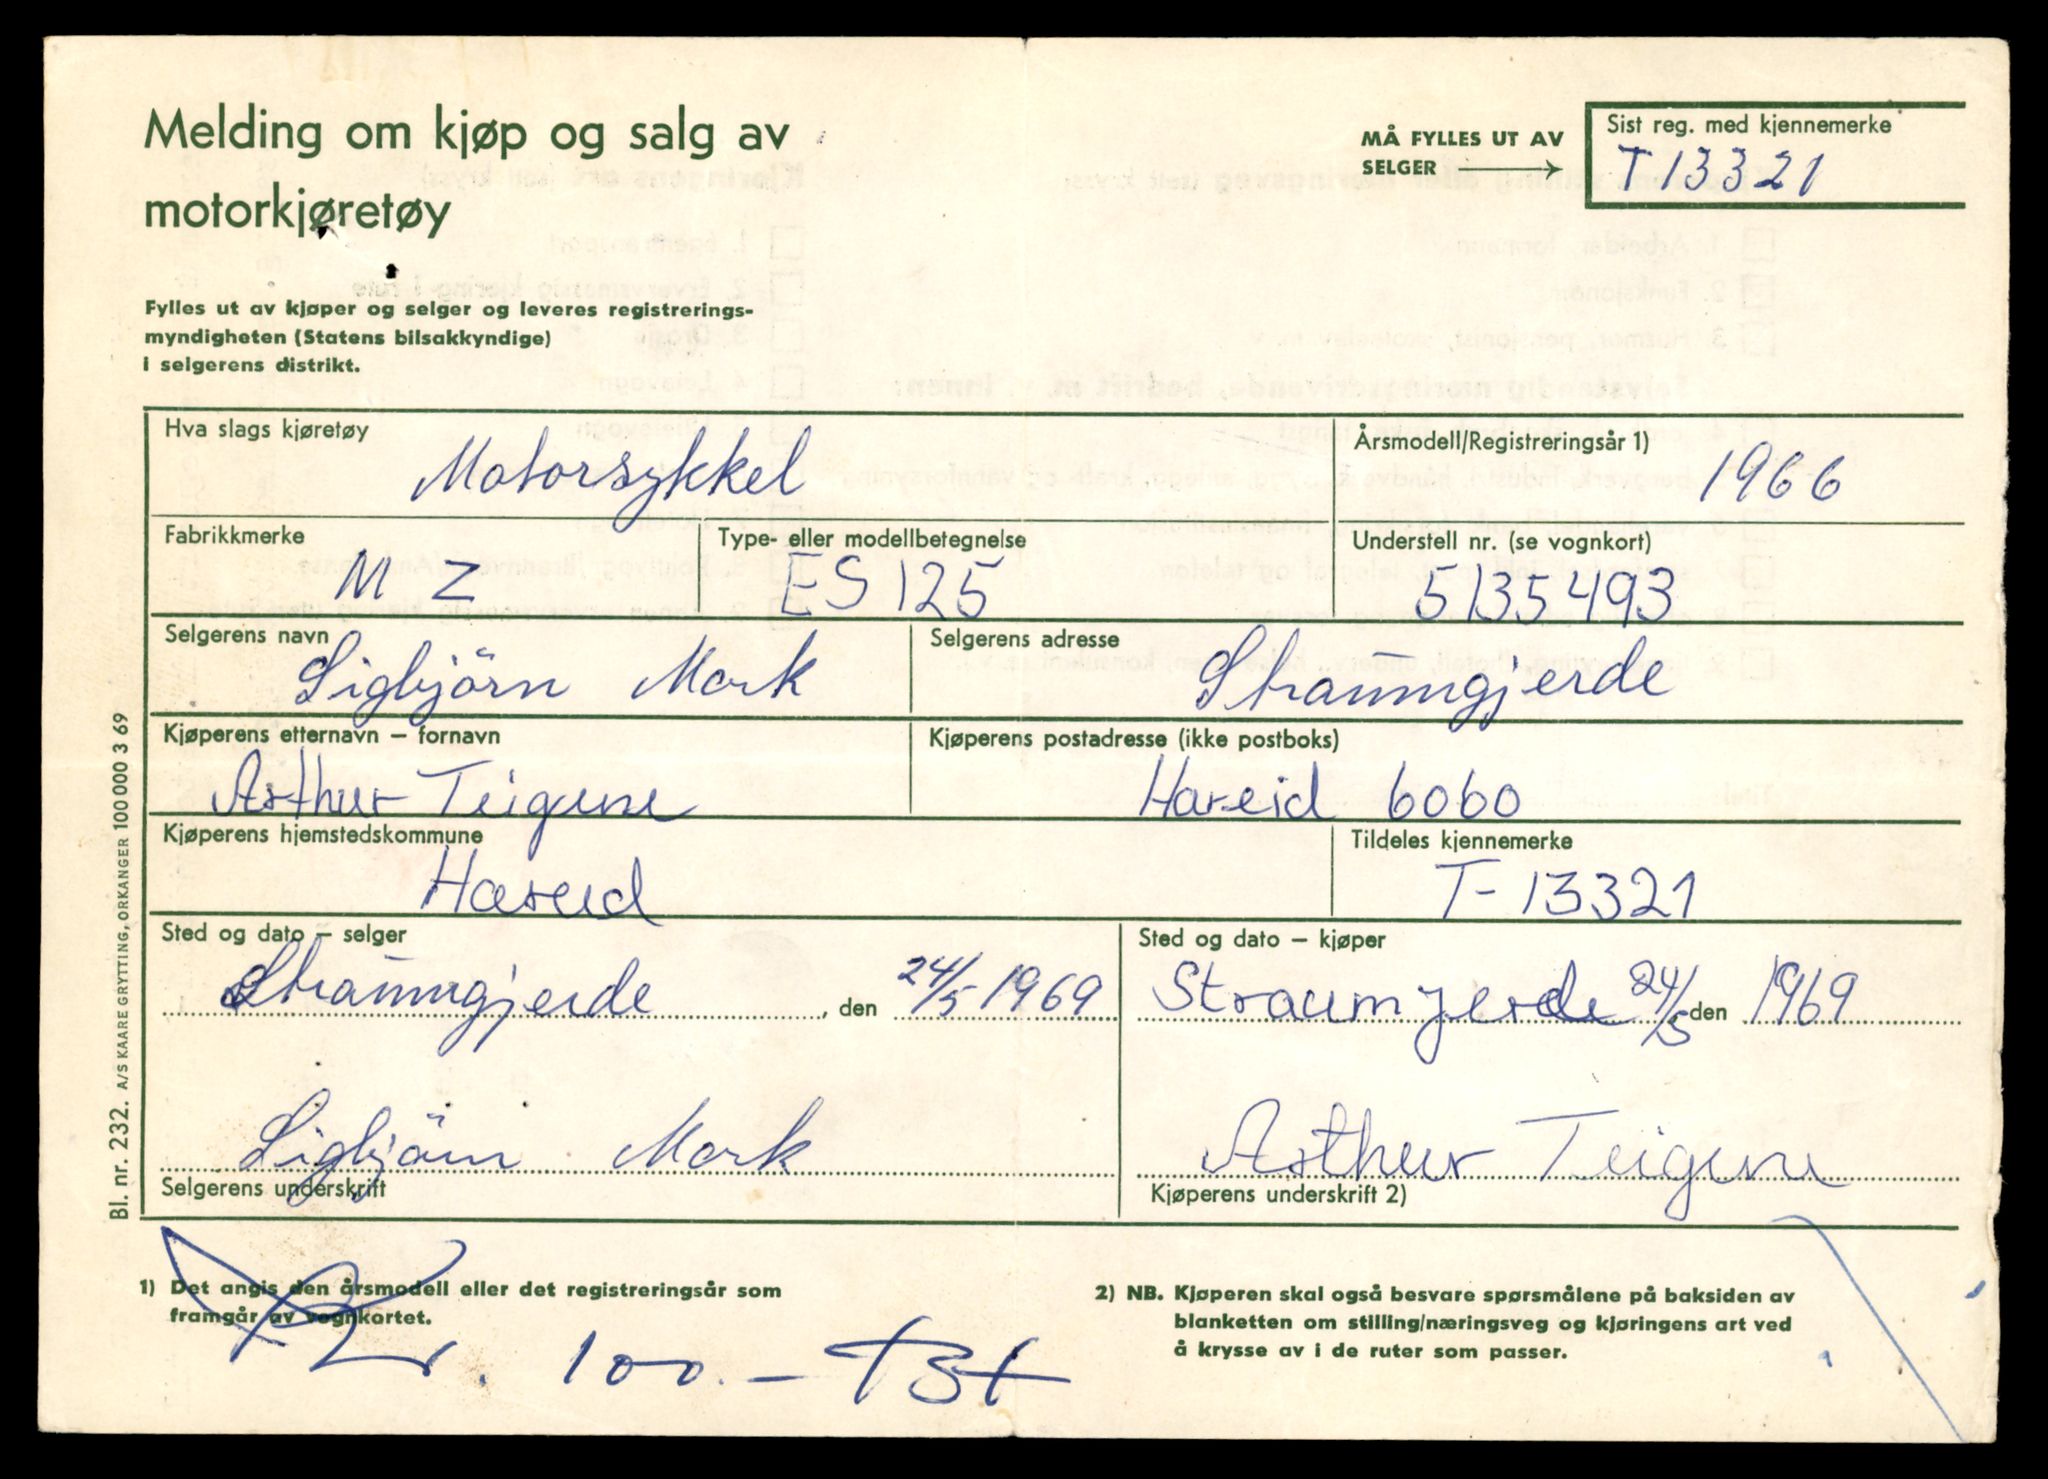 Melding om kjøp og salg av
motorkjøretøy
MÅ FYLLES UT AV
SELGER
Sist reg. med kjennemerke
T 13321
Fylles ut av kjøper og selger og leveres registrerings-
myndigheten (Statens bilsakkyndige)
i selgerens distrikt.
Hva slags kjøretøy
Motorsykkel
Årsmodell/Registreringsår 1)
1966
Fabrikkmerke
M Z
Type- eller modellbetegnelse
ES 125
Understell nr. (se vognkort)
5135493
Selgerens navn
Sigbjörn Mork
Selgerens adresse
Straumgjerde
Kjøperens etternavn – fornavn
Arthur Teigene
Kjøperens postadresse (ikke postboks)
Hareid 6060
Kjøperens hjemstedskommune
Hareid
Tildeles kjennemerke
T-13321
Sted og dato – selger
Straumgjerde, den 24/5 1969
Sted og dato – kjøper
Straumjerde 24/5 den 1969
Sigbjörn Mork
Selgerens underskrift
Arthur Teigene
Kjøperens underskrift 2)
1) Det angis den årsmodell eller det registreringsår som
framgår av vognkortet.
100.–
2) NB. Kjøperen skal også besvare spørsmålene på baksiden av
blanketten om stilling/næringsveg og kjøringens art ved
å krysse av i de ruter som passer.
Bl. nr. 232. A/S KAARE GRYTTING, ORKANGER 100 000 3 69